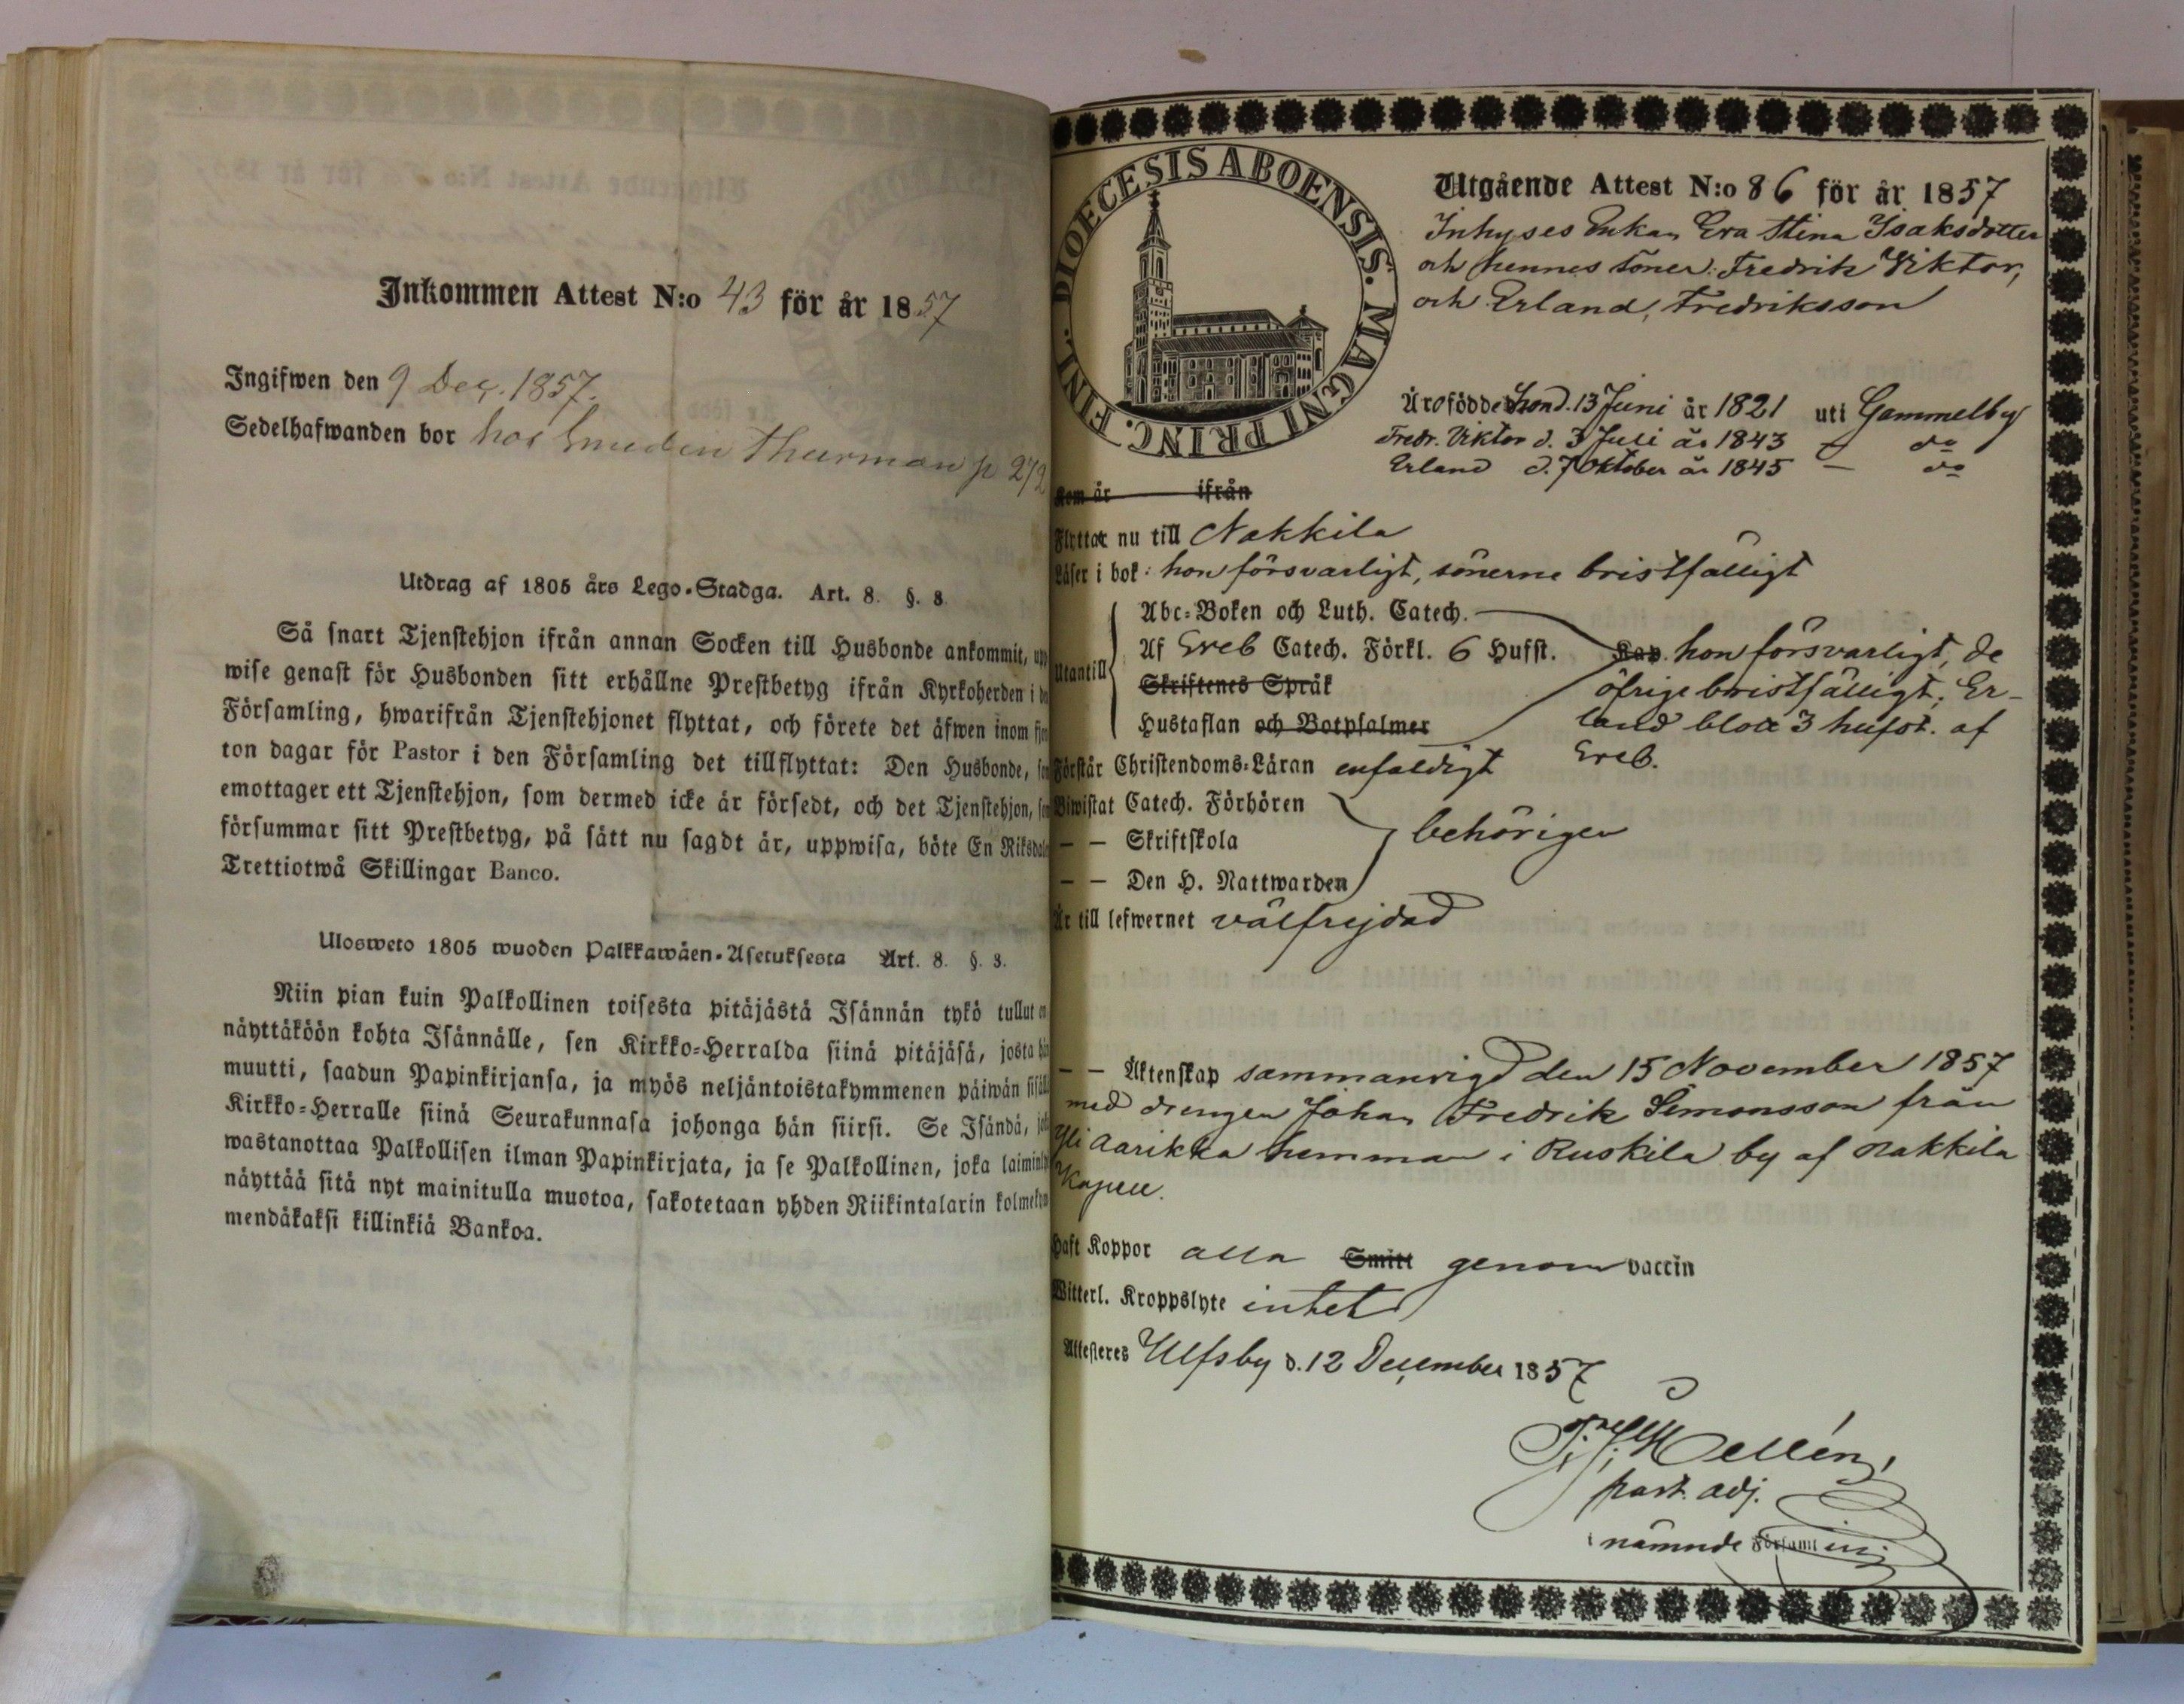 Inkommen Attest N:o 43 för år 1857
Ingifwen den 9 Dec. 1857.
Sedelhafwanden bor hos Smeden Thurman p 272
Utdrag af 1805 års Lego-Stadga. Art. 8. §. 8.
Så snart Tjenstehjon ifrån annan Socken till Husbonde ankommit, upp
wise genast för Husbonden sitt erhållne Prestbetyg ifrån Kyrkoherden i
Församling, hwarifrån Tjenstehjonet flyttat, och förete det äfwen inom
ton dagar för Pastor i den Församling det tillflyttat: Den Husbonde,
emottager ett Tjenstehjon, som dermed icke är försedt, och det Tjenstehjon,
försummar sitt Prestbetyg, på sätt nu sagdt är, uppwisa, böte En Riksdal
Trettiotwå Skillingar Banco.
Ulosweto 1805 wuoden Palkkawäen-Asetuksesta Art. 8. §. 8.
Niin pian kuin Palkollinen toisesta pitäjästä Isännän tykö tullut on
näyttäköön kohta Isännälle, sen Kirkko-Herralda siinä pitäjäsä, josta hän
muutti, saadun Papinkirjansa, ja myös neljäntoistakymmenen päiwän sisällä
Kirkko-Herralle siinä Seurakunnasa johonga hän siirsi. Se Isändä,
wastanottaa Palkollisen ilman Papinkirjata, ja se Palkollinen, joka laiminly
näyttää sitä nyt mainitulla muotoa, sakotetaan yhden Riikintalarin kolmeky
mendäkaksi killinkiä Bankoa.
DIOECESIS ABOENSIS. MAGNI PRINC. FINL.
Utgående Attest N:o 86 för år 1857
Inhyses Enkan Eva Stina Isaksdotter
och hennes söner: Fredrik Viktor,
och Erland, Fredriksson
Äro födde hon d. 13 Juni år 1821 uti Gammelby
Fredr. Viktor d. 3 Juli år 1843 — do
Erland d. 7 Oktober år 1845 — do
Kom år ifrån
Flyttar nu till Nakkila
Läser i bok: hon försvarligt, sönerne bristfälligt
Utantill
Abc-Boken och Luth. Catech.
Af Sveb Catech. Förkl. 6 Hufst. Kap. hon försvarligt, de
Skriftenes Språk öfrige bristfälligt; Er-
Hustaflan och Botpsalmer land blott 3 hufst. af
Förstår Christendoms-Läran enfaldigt Sveb.
Biwistat Catech. Förhören
— — Skriftskola behörigen
— — Den H. Nattwarden
Är till lefwernet välfrejdad
— — Äktenskap sammanvigd den 15 November 1857
med drengen Johan Fredrik Simonsson från
Yli Aarikka hemman i Ruskila by af Nakkila
Kapell.
Haft Koppor alla Smitt genom vaccin
Witterl. Kroppslyte intet
Attesteres Ulfsby d. 12 December 1857
Hellén,
past. adj.
i nämnde Församling